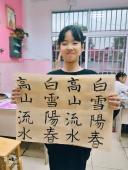 白雪陽春
高山流水
白雪陽春
高山流水